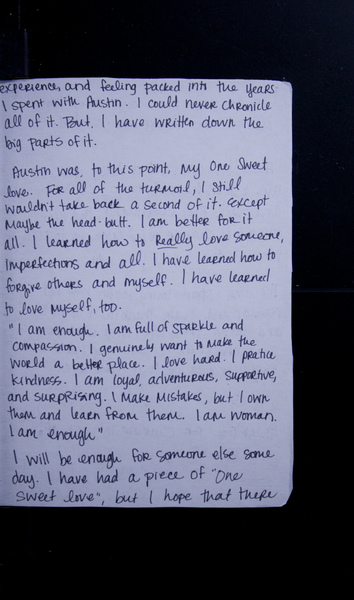 experience, and feeling packed into the years
I spent with Austin. I could never chronicle
all of it. But, I have written down the
big parts of it.
Austin was, to this point, my One Sweet
love. For all of the turmoil, I still
wouldn't take back a second of it. Except
maybe the head-butt. I am better for it
all. I learned how to Really love someone,
imperfections and all. I have learned how to
forgive others and myself. I have learned
to love myself, too.
"I am enough. I am full of sparkle and
compassion. I genuinely want to make the
world a better place. I love hard. I pratice
kindness. I am loyal, adventurous, supportive,
and surprising. I make mistakes, but I own
them and learn from them. I am woman.
I am enough"
I will be enough for someone else some
day. I have had a piece of "One
Sweet love", but I hope that there